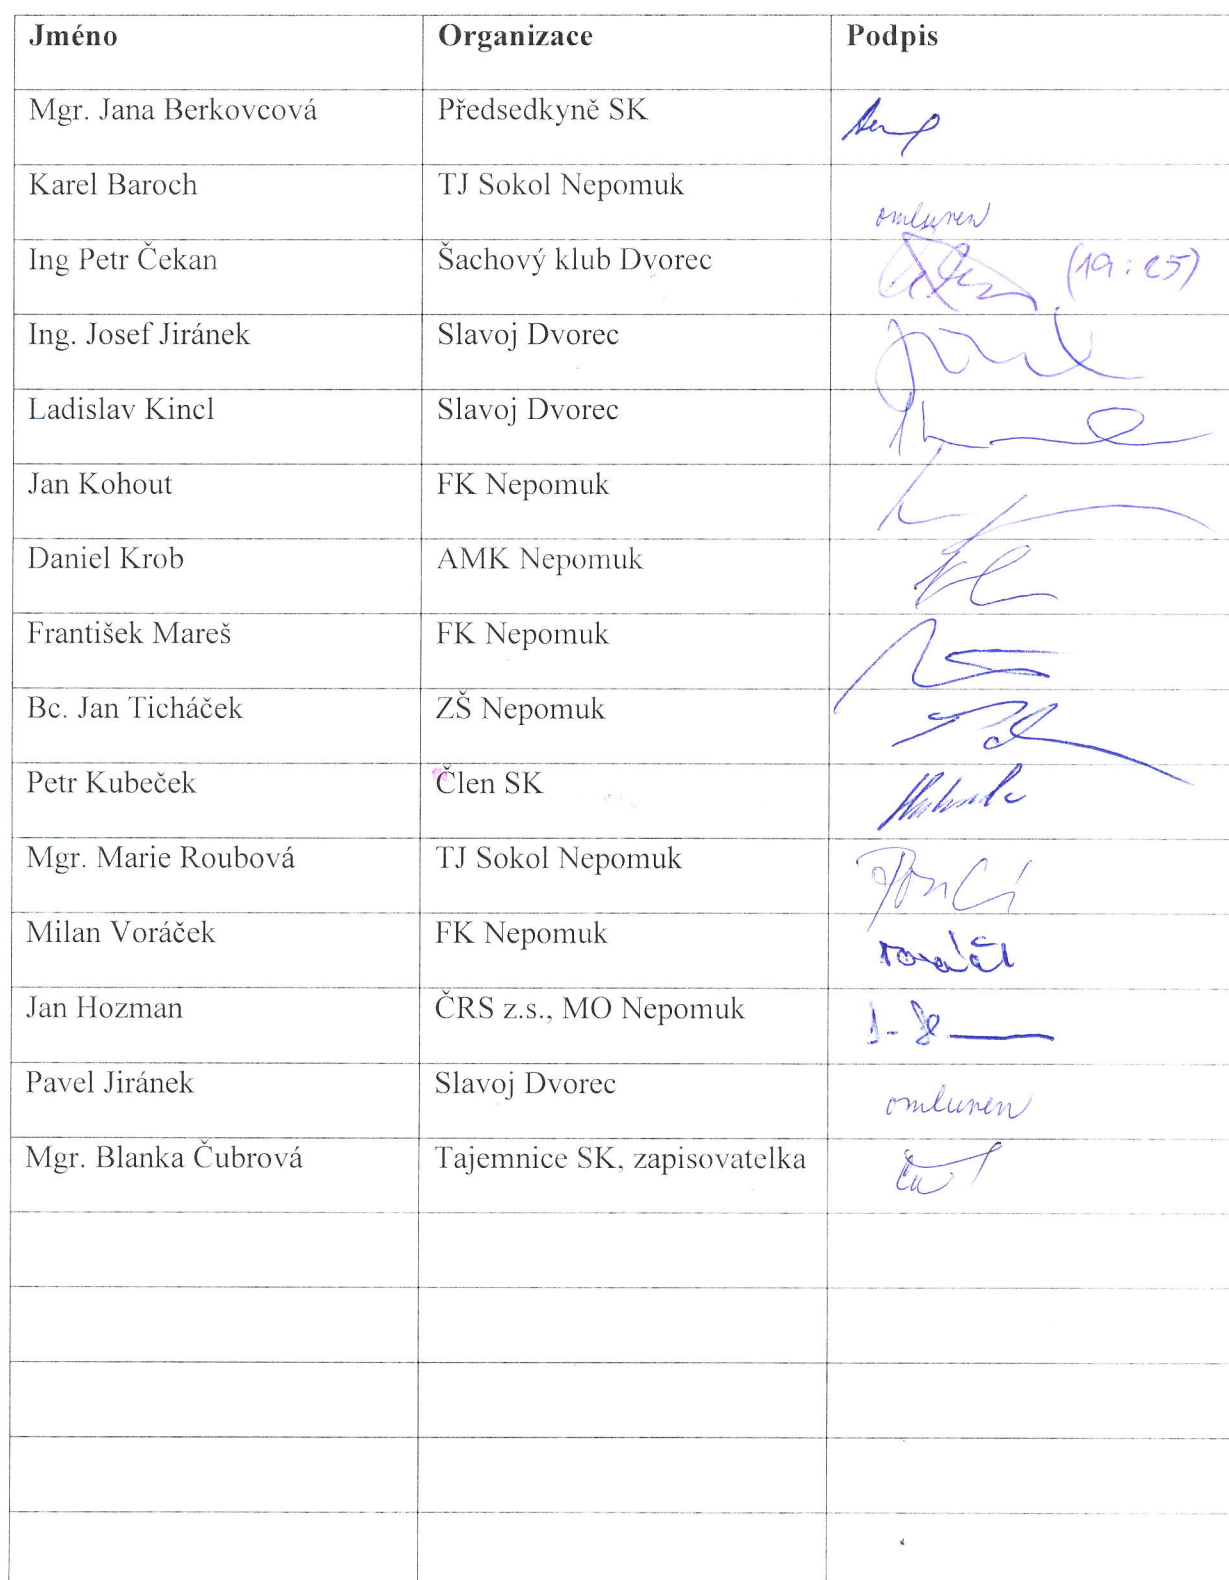 Jméno Organizace Podpis
Mgr. Jana Berkovcová Předsedkyně SK
Karel Baroch TJ Sokol Nepomuk omluven
Ing Petr Čekan Šachový klub Dvorec (19:25)
Ing. Josef Jiránek Slavoj Dvorec
Ladislav Kincl Slavoj Dvorec
Jan Kohout FK Nepomuk
Daniel Krob AMK Nepomuk
František Mareš FK Nepomuk
Bc. Jan Ticháček ZŠ Nepomuk
Petr Kubeček Člen SK
Mgr. Marie Roubová TJ Sokol Nepomuk
Milan Voráček FK Nepomuk
Jan Hozman ČRS z.s., MO Nepomuk
Pavel Jiránek Slavoj Dvorec omluven
Mgr. Blanka Čubrová Tajemnice SK, zapisovatelka